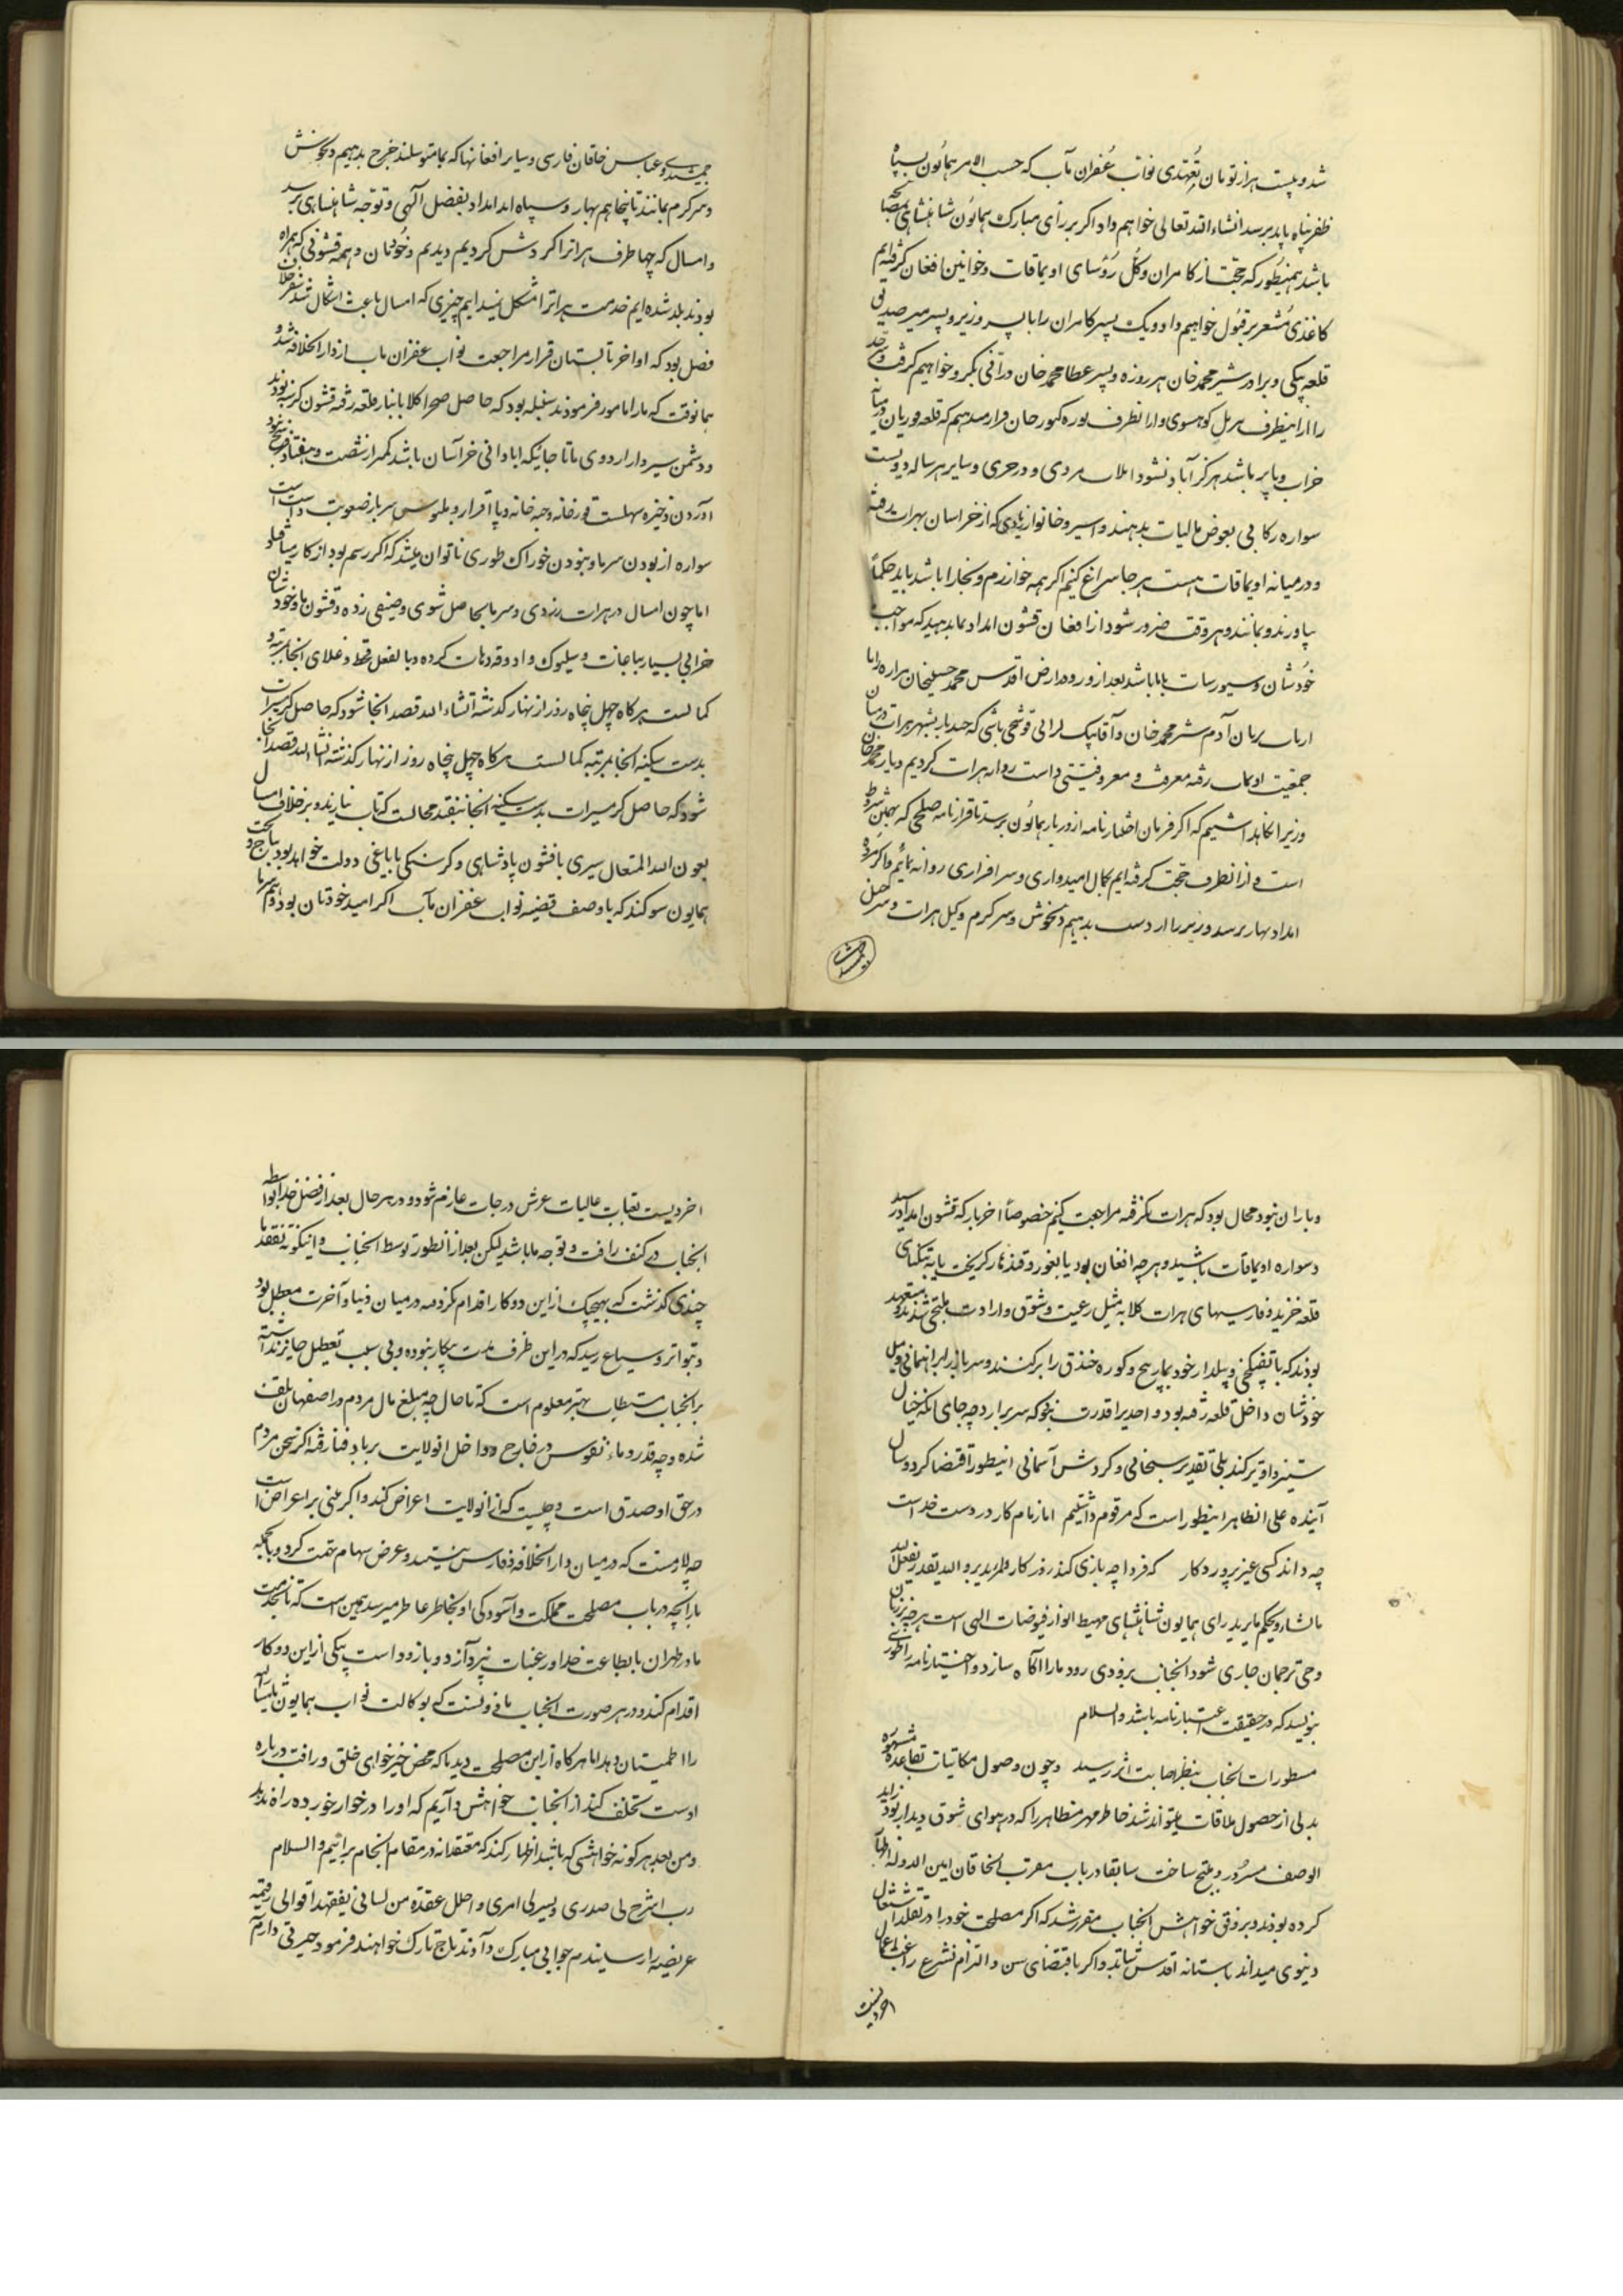 شد و بیست هزار تومان تعهدی نواب غفران مآب که حسب الامر همایون بسپاه
ظفرپناه باید برسد انشاء الله تعالی خواهم داد اگر بر رأی مبارک همایون شاهنشاهی
باشد همینطور که حجت از کامران و کل رؤسای اویماقات و خوانین افغان گرفته‌ایم
کاغذی مشعر بر قبول خواهیم داد و یک پسر کامران را با پسر وزیر و پسر میر صدیق
قلعه بیکی و برادر شیر محمد خان هزاره و پسر عطا محمد خان درانی گرو خواهیم گرفت و سرحد
را از اینطرف سر پل کوهسوی و از انطرف قرار میدهیم که قلعه غوریان در میانه
خراب و بایر باشد هرگز آباد نشود و سایر هر ساله دویست
سواره رکابی بعوض مالیات بدهند و اسیر و خانوار زیادی که از خراسان بهرات رفته
و در میانه اویماقات هست هر جا سراغ کنیم اگر همه خوارزم و بخارا باشد باید حکماً
بیاورند و بمانند و هر وقت ضرور شود از افغان قشون امداد بما بدهید که مواجب
خودشان و سیورسات با ما باشد بعد از ورود ارض اقدس محمد حسینخان هزاره را با
آدم شیر محمد خان و آقا بیک قوشچی باشی که چند بار بشهر هرات و میان
جمعیت اویماق رفته معرفت و معروفیتی داشت روانه هرات کردیم و یار محمد خان
وزیر را نگاهداشتیم که اگر فرمان اختیارنامه از دربار همایون برسد تا قرارنامه صلحی که بهمین شروط
است و از انطرف حجت گرفته‌ایم بکمال امیدواری و سرافرازی روانه نمائیم و اگر مژده
امداد بهار برسد وزیر را از دست بدهیم دلخوش و سرگرم وکیل هرات و میر حسن
جمشیدی
جمشیدی و عباس خاقان فارسی و سایر افغانها که بما متوسلند خرج بدهیم دلخوش
و سرگرم بمانند تا پنجاهم بهار و سپاه امداد بفضل الهی و توجه شاهنشاهی برسد
و امسال که چهار طرف هرات را گردش کردیم دیدیم و خودمان و همه قشونی که همراه
بودند بلد شده‌ایم خدمت هرات را مشکل ندیده‌ایم چیزی که امسال باعث اشکال شد
فصل بود که اواخر تابستان قرار مراجعت نواب غفران مآب از دار الخلافه شد و
همانوقت که ما را مامور فرمودند سنبله بود که حاصل صحرا کلا بانبار قلعه رفته قشون گرسنه بودند
و دشمن سیر و از اردوی ما تا جائیکه ابادانی خراسان باشد کمتر از شصت و هفتاد فرسخ نبود
آوردن ذخیره سهلست قورخانه و جبه‌خانه و پا افزار و ملبوس سرباز صعوبت داشت
سواره از بودن سرما و نبودن خوراک طوری ناتوان شد که اگر رسم بود از کار میافتاد
اما چون امسال در هرات و سرما بحاصل شتوی و صیفی زده و قشون ما و خودشان
خرابی بسیار بباغات و بیلوک و ادوقه دهات کرده و بالفعل قحط و غلای انجا بمرتبه
کمالست هرگاه چهل پنجاه روز از بهار گذشته انشاء الله قصد انجا شود که حاصل گرمسیرات
بدست سکنه انجا بمرتبه کمالست هرگاه چهل پنجاه روز از بهار گذشته انشاء الله قصد انجا
شود که حاصل گرمسیرات بدست سکنه انجا نیفتد محالست که تاب نیاورند و بر خلاف امسال
بعون الله المتعال سیری با قشون پادشاهی و گرسنگی با یاغی دولت خواهد بود بتاج و تخت
همایون سوگند که با وصف قضیه نواب غفران مآب اگر امید خودتان بود و هم سرما
و باران نبود محال بود که هرات نگرفته مراجعت کنیم خصوصاً اخر بار که قشون امداد رسید
و سواره اویماقات پاشید و هر چه افغان بود یا بغور و قندهار گریخت یا به تنکنای
قلعه خزید و فارسیهای هرات کلا بمیل رعیت و شوق و ارادت ملتجی شدند و متعهد
بودند که با تفنگچی و بیلدار خود بمارپیچ و کوره خندق را پر کنند و سرباز را براهنمائی و میل
خودشان داخل قلعه رفته بود و احدی را قدرت نبود که سر برارد چه جای انکه خیال
ستیز و اویز کند بلی تقدیر سبحانی و گردش آسمانی اینطور اقتضا کرد و سال
آینده علی الظاهر اینطور است که مرقوم داشتیم اما زمام کار در دست خداست
چه داند کسی غیر پروردگار که فردا چه بازی کند روزگار و الله یقدر و یفعل
ما یشاء و یحکم ما یرید رای همایون شاهنشاهی مهبط انوار فیوضات الهی است هر چه بزبان
وحی ترجمان جاری شود انجناب بزودی زود ما را آگاه سازد و اختیارنامه را طوری
بنویسد که در حقیقت اعتبارنامه باشد والسلام
مسطورات انجناب بنظر اصابت اثر رسید و چون وصول مکاتیبات بقاعده مشهوره
بدلی از حصول ملاقات میتواند شد خاطر مهر مظاهر را که در هوای شوق دیدار بود زاید
الوصف مسرور و مبتهج ساخت سابقا در باب مقرب الخاقان امین الدوله اظهار
کرده بودند و بر وفق خواهش انجناب مقرر شد که اگر مصلحت خود را در تقلد اشتغال
دنیوی میداند باستانه اقدس شتابد و اگر باقتضای سن و التزام تشرع راغب اعمال
اخرویست
اخرویست بعتبات عالیات عرش درجات عازم شود و در هر حال بعد از فضل خدا بواسطه
انجناب در کنف رافت و توجه ما باشد لیکن بعد از انطور توسط انجناب و اینگونه تفقد ما
چندی گذشت که بهیچیک از این دو کار اقدام نکرده در میان دنیا و آخرت معطل بود
و بتواتر و سماع رسید که در این ظرف مدت بیکار نبوده و بی سبب تعطیل جایز ندانسته
بر انجناب مستطاب بهتر معلوم است که تا حال چه مبلغ مال مردم در اصفهان تلف
شده و چه قدر دماء نفوس در خارج و داخل انولایت برباد فنا رفته اگر سخن مردم
در حق او صدق است و چیست که از انولایت اعراض کند و اگر مبنی بر اعراض است
چه لازمست که در میان دار الخلافه و فارس نشیند و عرض سهام تهمت گردد و بالجمله
بارانچه در باب مصلحت مملکت و آسودگی او بخاطر عاطر میرسد همین است که تا بخدمت
ما در طهران یا بطاعت خدا در عتبات بپردازد و بازود است بیکی از این دو کار
اقدام کند و در هر صورت انجناب ماذونست که بوکالت نواب همایون ما ایشان
را اطمینان دهد اما هرگاه از این مصلحت دید ما که محض خیرخواهی خلق و رافت درباره
اوست تخلف کند از انجناب خواهش داریم که او را در خوار خورده راه ندهد
و من بعد هر گونه خواهشی که باشد اظهار کند که متفقدانه در مقام انجام برائیم والسلام
رب اشرح لی صدری و یسر لی امری و احلل عقدة من لسانی یفقهوا قولی رقیمه
عریضه را رسانیدم جوابی مبارک دادند بتاج تارک خواهند فرمود حیرتی دارم